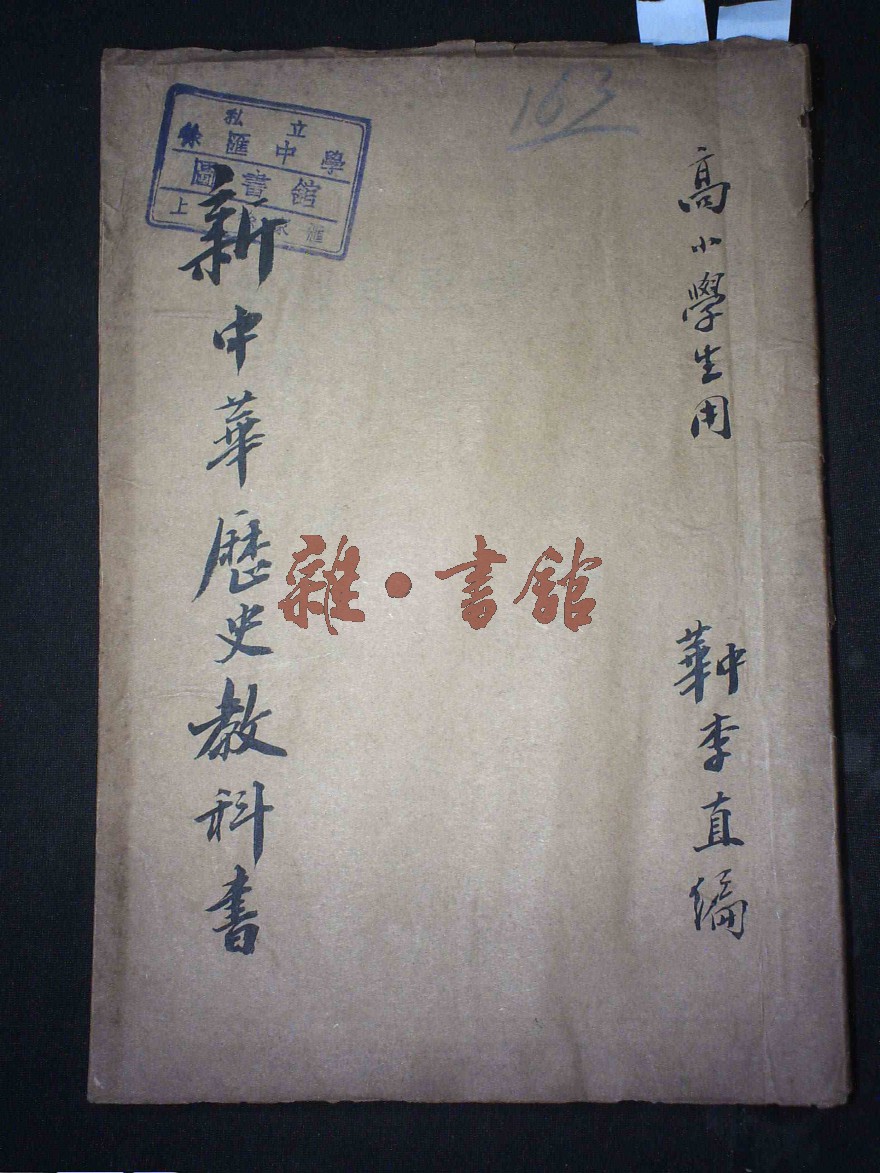 高小學生用
中華李直編
新中華歷史教科書
私立
徐匯中學
圖書館
上
匯
163
雜·書館